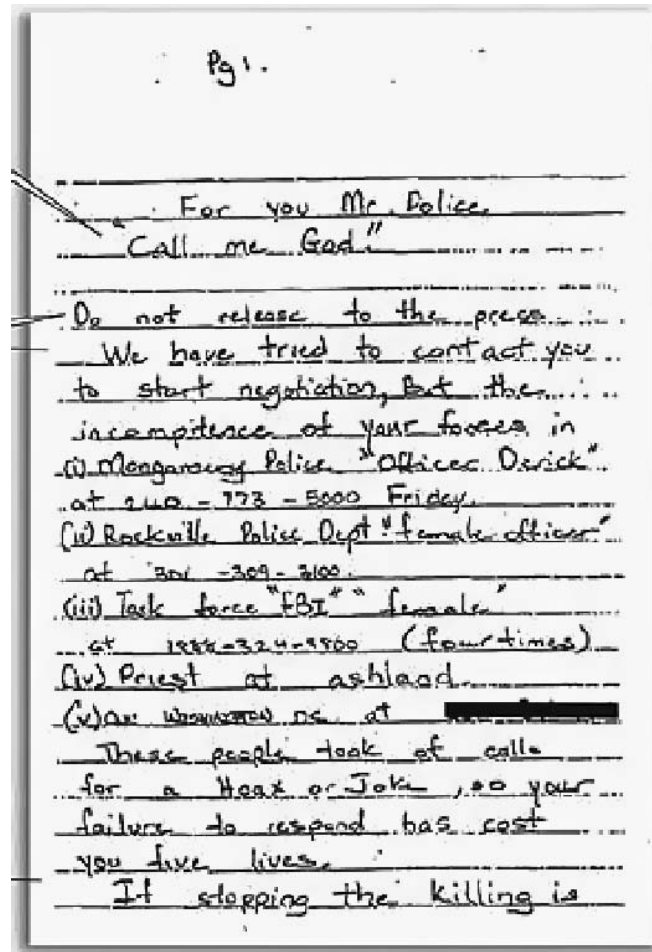 Pg 1.
For you Mr. Police.
"Call me God."
Do not release to the press.
We have tried to contact you
to start negotiation, But the
incompitence of your forces in
(i) Mongomery Police "Officer Derick"
at 240-773-5000 Friday.
(ii) Rockville Police Dept. "female officer"
at 301-309-3100.
(iii) Task force "FBI" "female"
at 1888-324-9800 (four times)
(iv) Priest at ashland.
(v) WASHINGTON DC at
These people took of calls
for a Hoax or Joke, so your
failure to respond has cost
you five lives.
If stopping the killing is